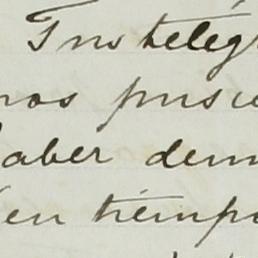 Sus telegr
nos pusie
aber denu
en tiempo